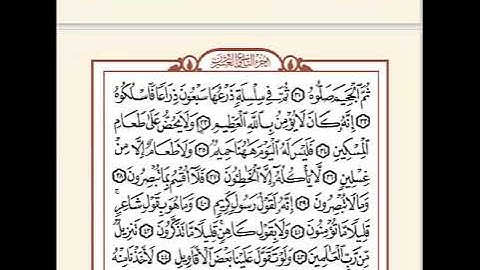 الجزء التاسع والعشرون
ثُمَّ ٱلْجَحِيمَ صَلُّوهُ ٣١ ثُمَّ فِى سِلْسِلَةٍ ذَرْعُهَا سَبْعُونَ ذِرَاعًا فَٱسْلُكُوهُ
٣٢ إِنَّهُۥ كَانَ لَا يُؤْمِنُ بِٱللَّهِ ٱلْعَظِيمِ ٣٣ وَلَا يَحُضُّ عَلَىٰ طَعَامِ
ٱلْمِسْكِينِ ٣٤ فَلَيْسَ لَهُ ٱلْيَوْمَ هَٰهُنَا حَمِيمٌ ٣٥ وَلَا طَعَامٌ إِلَّا مِنْ
غِسْلِينٍ ٣٦ لَّا يَأْكُلُهُۥٓ إِلَّا ٱلْخَٰطِـُٔونَ ٣٧ فَلَآ أُقْسِمُ بِمَا تُبْصِرُونَ ٣٨
وَمَا لَا تُبْصِرُونَ ٣٩ إِنَّهُۥ لَقَوْلُ رَسُولٍ كَرِيمٍ ٤٠ وَمَا هُوَ بِقَوْلِ شَاعِرٍ
قَلِيلًا مَّا تُؤْمِنُونَ ٤١ وَلَا بِقَوْلِ كَاهِنٍ قَلِيلًا مَّا تَذَكَّرُونَ ٤٢ تَنزِيلٌ
مِّن رَّبِّ ٱلْعَٰلَمِينَ ٤٣ وَلَوْ تَقَوَّلَ عَلَيْنَا بَعْضَ ٱلْأَقَاوِيلِ ٤٤ لَأَخَذْنَا مِنْهُ